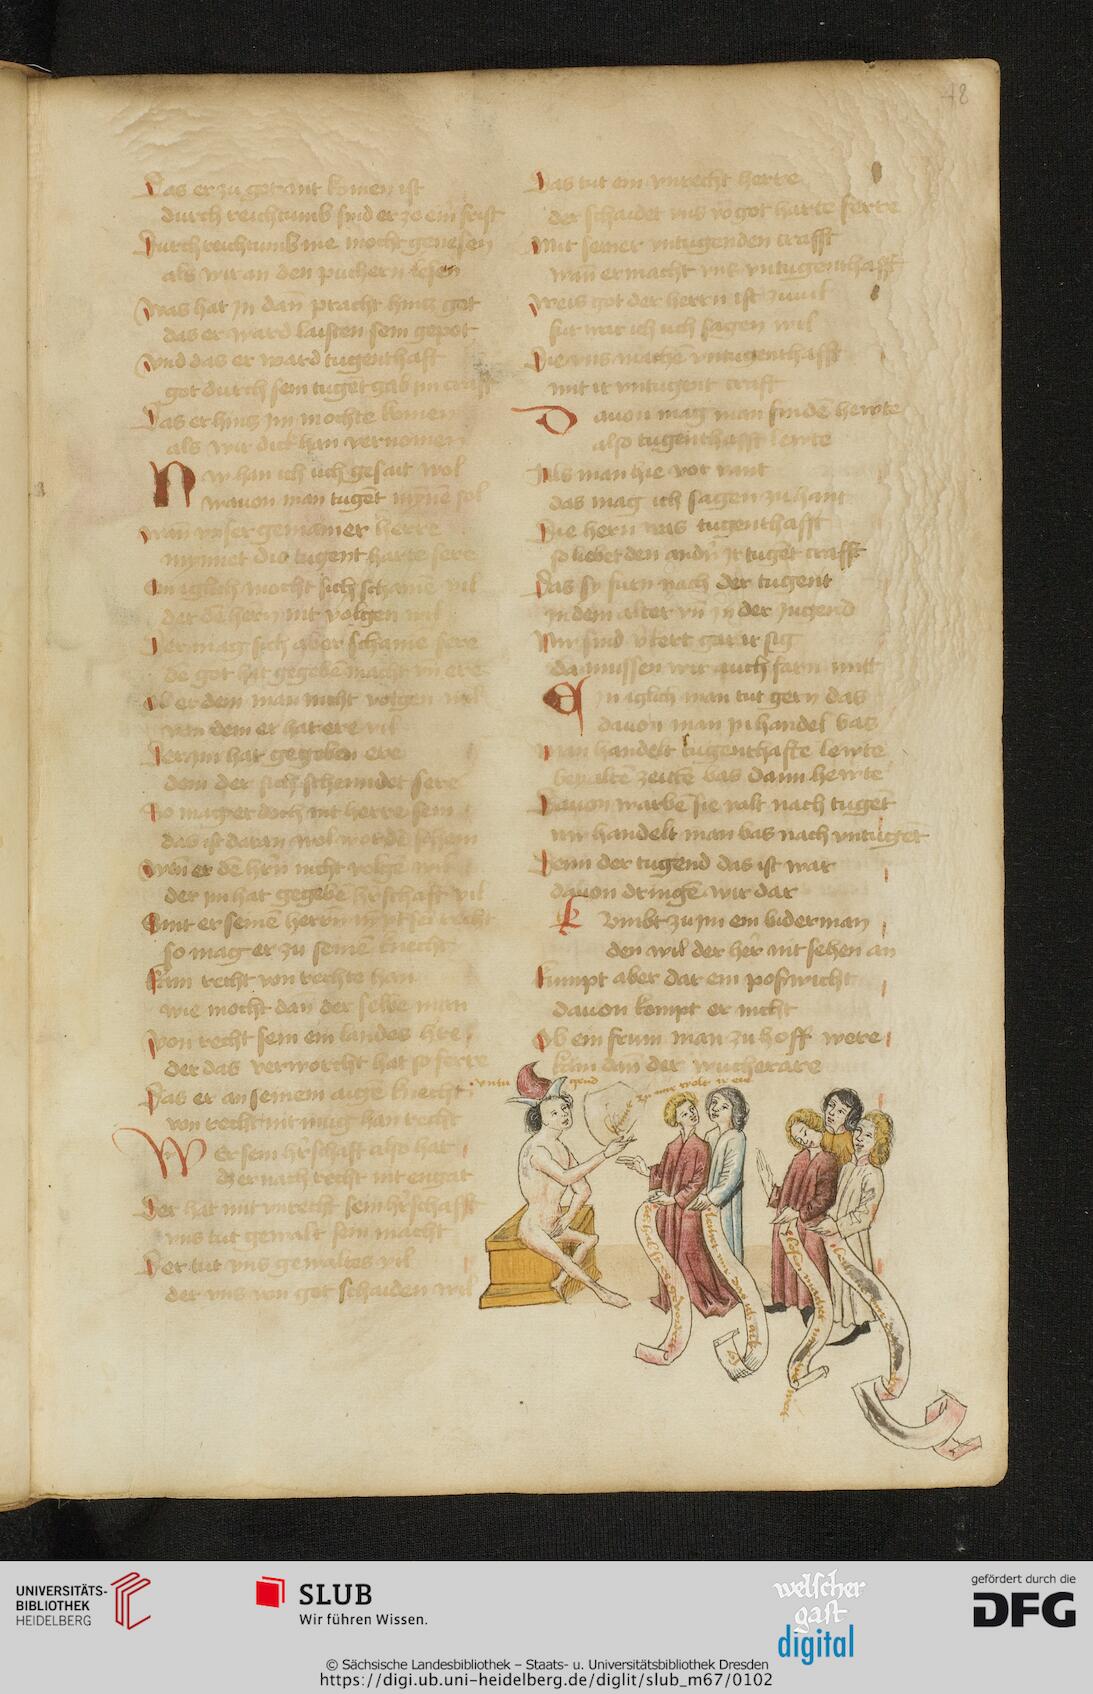 48
Das er zu got nit komen ist
durch reichtumb sind er ze ein frist
Durch reichtumb nie mocht genesen
als wir an den puchern lesen
Was hat in dan pracht hintz got
das er ward laisten sein gepot
Und das er ward tugenthaft
got durch sein tuget gab im crafft
Das er hintz im mochte komen
als wir dick han vernomen
Nw han ich uch gesait wol
wavon man tuget mynne sol
wan unser gemainer herre
mynnet die tugent harte sere
iglich mocht sich schame vil
der de hern nit volgen wil
Der mag sich aber schame sere
de got hat gegebe macht un ere
Ob er dem man nicht volgen wil
von dem er hat ere vil
Der im hat gegeben ere
dem der sich schemidet sere
So mag er doch nit herre sein
das ist daran wol worde schein
Wen er de hern nicht volge wil
der im hat gegebe hrschaft vil
Sint er seine herrn nit sei recht
so mag er zu seine knecht
kain recht von rechte han
wie mocht dan der selbe man
von recht sein ein landes hre
der das verworcht hat so ferre
Das er an seinem aigen knecht
von recht nit mug han recht
Wer sein hrschaft also hat
der nach recht nit engat
Der hat mit unrecht sein hrschafft
uns tut gewalt sein macht
Der tut uns gewaltes vil
der uns von got schaiden wil
Das tut ein unrecht herre
der schaidet uns vo got harte ferre
Mit seiner untugenden crafft
wan er macht uns untugenthafft
Weis got der herrn ist zuvil
fur war ich uch sagen wil
Die uns mache untugenthafft
mit ir untugent craft
Davon mag man finde hewte
also tugenthafft lewte
Als man hie vor vant
das mag ich sagen zu hant
Die hern was tugenthafft
so liebet den andn ir tuget crafft
Das sy furn nach der tugent
in dem alter un in der jugend
Nw sind verkert gar ir sig
da mussen wir auch farn mitt
Ein iglich man tut gern das
davon man in handel bas
Man handelt tugenthafte lewte
bey alte zeitte bas dann hewte
Davon warbe sie valt nach tuget
nw handelt man bas nach untuget
Denn der tugend das ist war
davon dringe wir dar
Kumbt zu im ein biderman
den wil der her nit sehen an
kumpt aber dar ein poswicht
davon kompt er nicht
Ob ein frum man zu hoff were
klan dan der wucherare
untu gend
UNIVERSITÄTS-
BIBLIOTHEK
HEIDELBERG
SLUB
Wir führen Wissen.
welscher
gast
digital
gefördert durch die
DFG
© Sächsische Landesbibliothek – Staats- u. Universitätsbibliothek Dresden
https://digi.ub.uni-heidelberg.de/diglit/slub_m67/0102